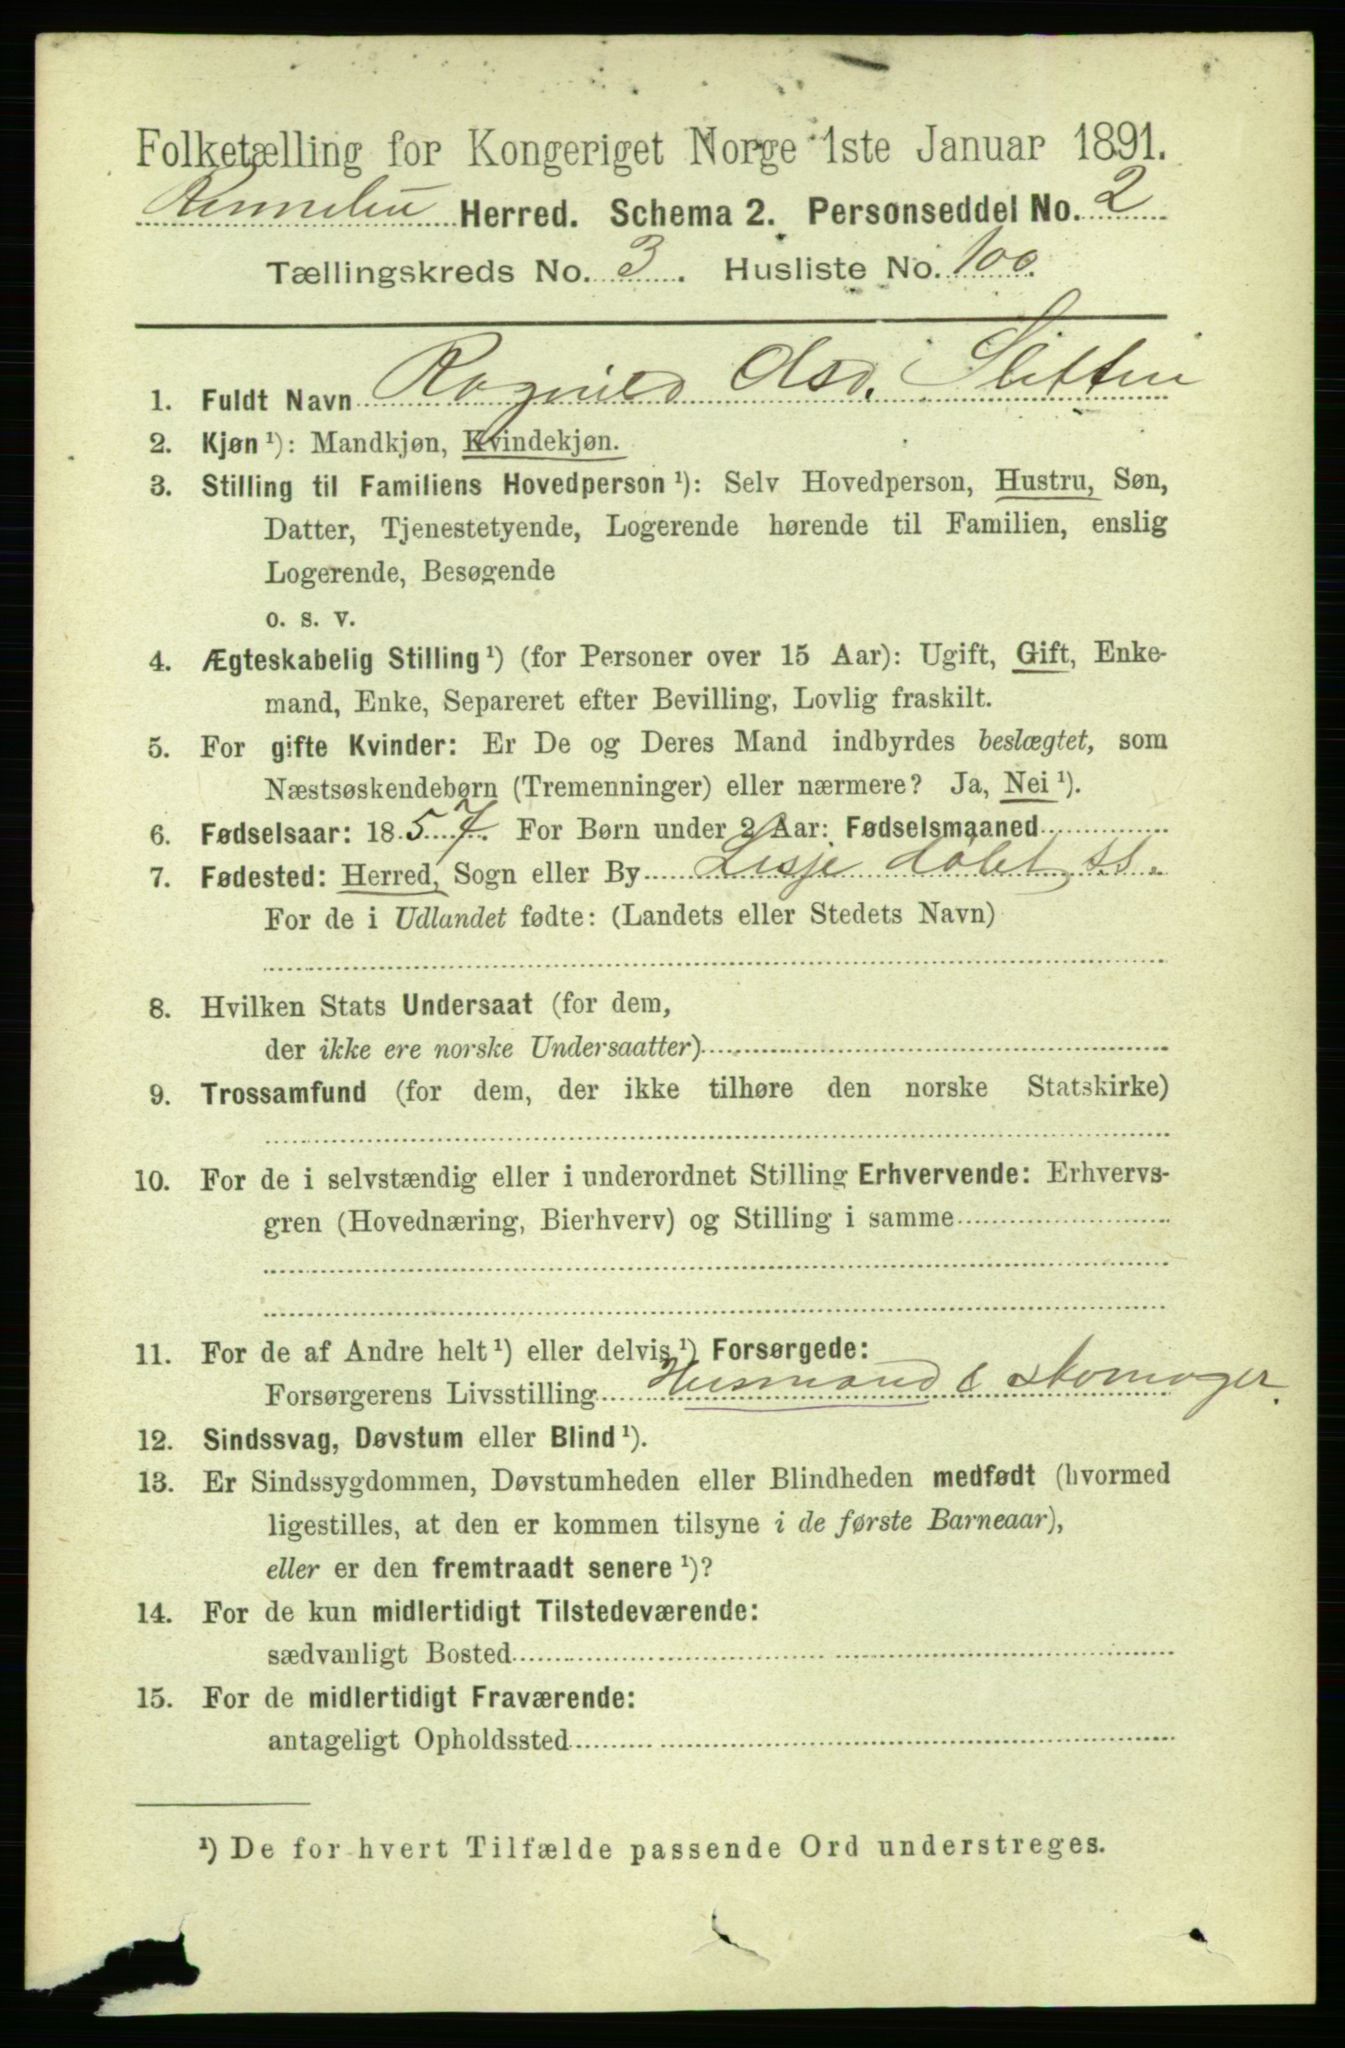 Folketælling for Kongeriget Norge 1ste Januar 1891.
Rennebu Herred. Schema 2. Personseddel No. 2
Tællingskreds No. 3. Husliste No. 100.
1. Fuldt Navn Ragnild Olsd. Slettin
2. Kjøn ¹): Mandkjøn, Kvindekjøn.
3. Stilling til Familiens Hovedperson ¹): Selv Hovedperson, Hustru, Søn,
Datter, Tjenestetyende, Logerende hørende til Familien, enslig
Logerende, Besøgende
o. s. v.
4. Ægteskabelig Stilling ¹) (for Personer over 15 Aar): Ugift, Gift, Enke-
mand, Enke, Separeret efter Bevilling, Lovlig fraskilt.
5. For gifte Kvinder: Er De og Deres Mand indbyrdes beslægtet, som
Næstsøskendebørn (Tremenninger) eller nærmere? Ja, Nei ¹).
6. Fødselsaar: 1857. For Børn under 2 Aar: Fødselsmaaned
7. Fødested: Herred, Sogn eller By
For de i Udlandet fødte: (Landets eller Stedets Navn)
8. Hvilken Stats Undersaat (for dem,
der ikke ere norske Undersaatter)
9. Trossamfund (for dem, der ikke tilhøre den norske Statskirke)
10. For de i selvstændig eller i underordnet Stilling Erhvervende: Erhvervs-
gren (Hovednæring, Bierhverv) og Stilling i samme
11. For de af Andre helt ¹) eller delvis ¹) Forsørgede:
Forsørgerens Livsstilling Husmand & skomager.
12. Sindssvag, Døvstum eller Blind ¹).
13. Er Sindssygdommen, Døvstumheden eller Blindheden medfødt (hvormed
ligestilles, at den er kommen tilsyne i de første Barneaar),
eller er den fremtraadt senere ¹)?
14. For de kun midlertidigt Tilstedeværende:
sædvanligt Bosted
15. For de midlertidigt Fraværende:
antageligt Opholdssted
¹) De for hvert Tilfælde passende Ord understreges.